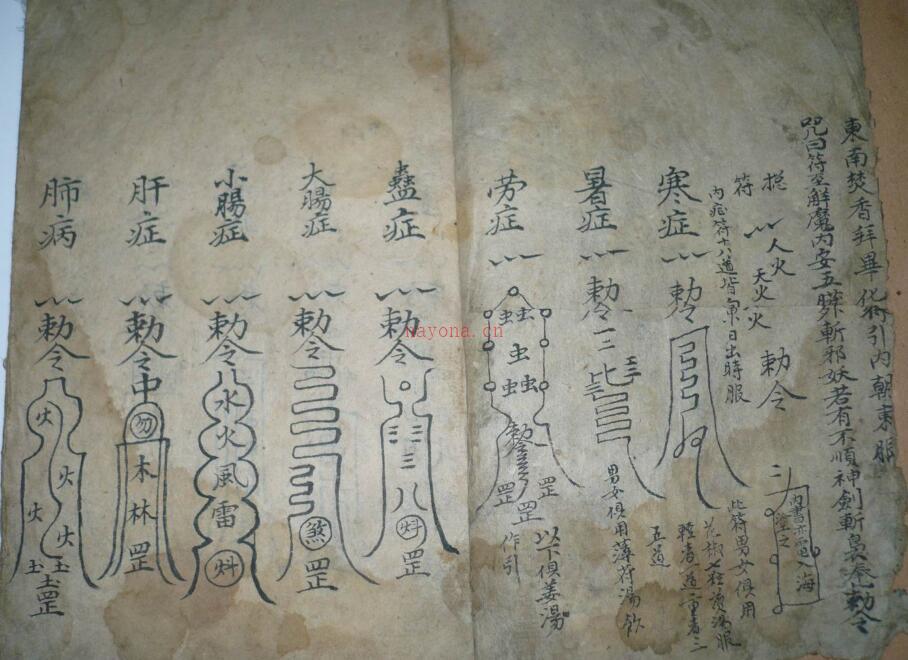 東南焚香拜畢化術引內朝東服
咒曰符至解魔內安五臟斬邪妖若有不順神劍斬臬奉勅令
符
人火
天火火
勅令
內書
海
內症符十八道皆東日出時服
此符男女俱用
花椒七粒燙湯服
輕者一道重者三
五道
寒症
勅令
弓弓弓
暑症
勅令
男女俱用薄荷湯飲
劳症
虫虫
虫
虫虫
罡
罡
罡
以下俱姜湯
作引
蠱症
勅令
三
三
三
八
罡
大腸症
勅令
弓弓
煞
罡
小腸症
勅令
水
火
風
雷
肝症
勅令
中
勿
木
林
罡
肺病
勅令
火
火
火
火
玉
玉
玉
罡
nayona.cn